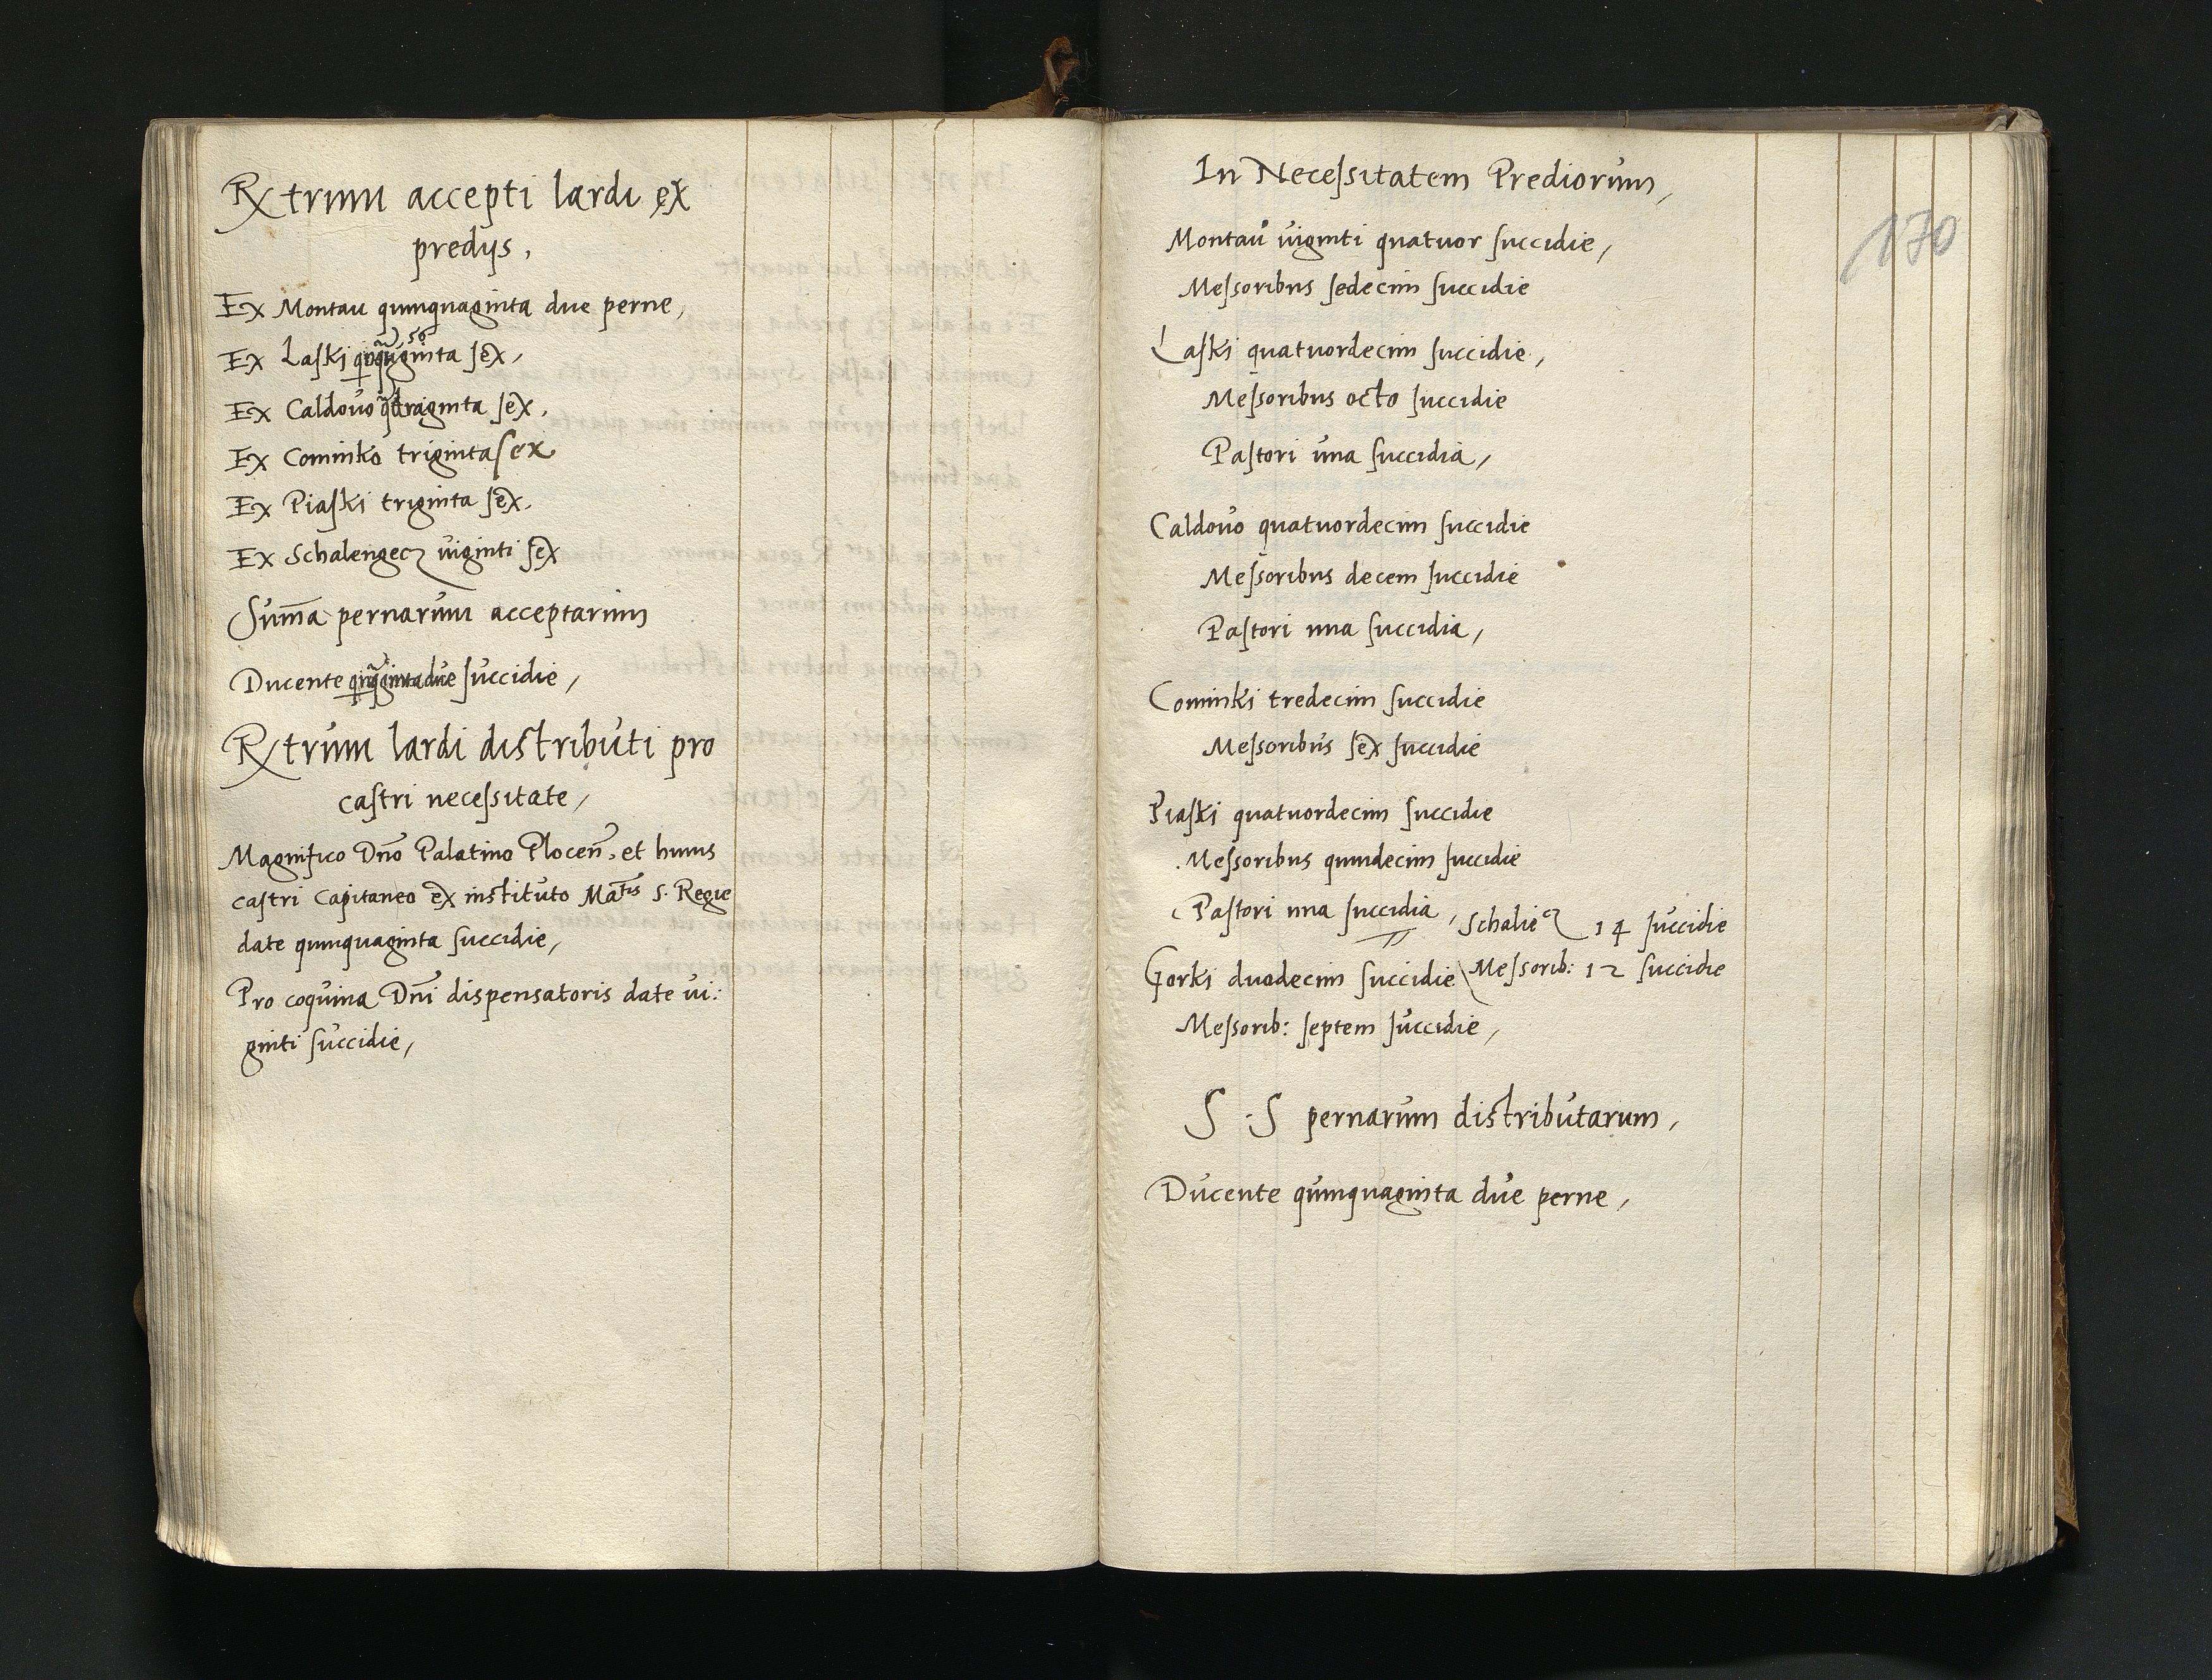 Rxtrum accepti lardi ex
predijs,
Ex Montau quinquaginta due perne,
56
Ex Laski quīquāginta sex,
Ex Caldovo qdraginta sex,
Ex Cominko triginta sex
Ex Piaski triginta sex,
Ex Schalengecz viginti sex
Suma pernarum acceptarum
Ducente due succidie,
Rxtrum lardi distributi pro
castri necessitate,
Magnifico Dno Palatino Plocen, et huius
castri Capitaneo ex instituto Matis S. Regie
date quinquaginta succidie,
Pro coquina Dni dispensatoris date vi:
ginti succidie,
In Necessitatem Prediorum,
170
Montau viginti quatuor succidie,
Messoribus sedecim succidie
Laski quatuordecim succidie,
Messoribus octo succidie
Pastori una succidia,
Caldovo quatuordecim succidie
Messoribus decem succidie
Pastori una succidia,
Cominki tredecim succidie
Messoribus sex succidie
Piaski quatuordecim succidie
Messoribus quindecim succidie
Pastori una succidia, Schaliecz 14 succidie
Gorki duodecim succidie Messorib: 12 succidie
Messorib: septem succidie,
S . S pernarum distributarum,
Ducente quinquaginta due perne,